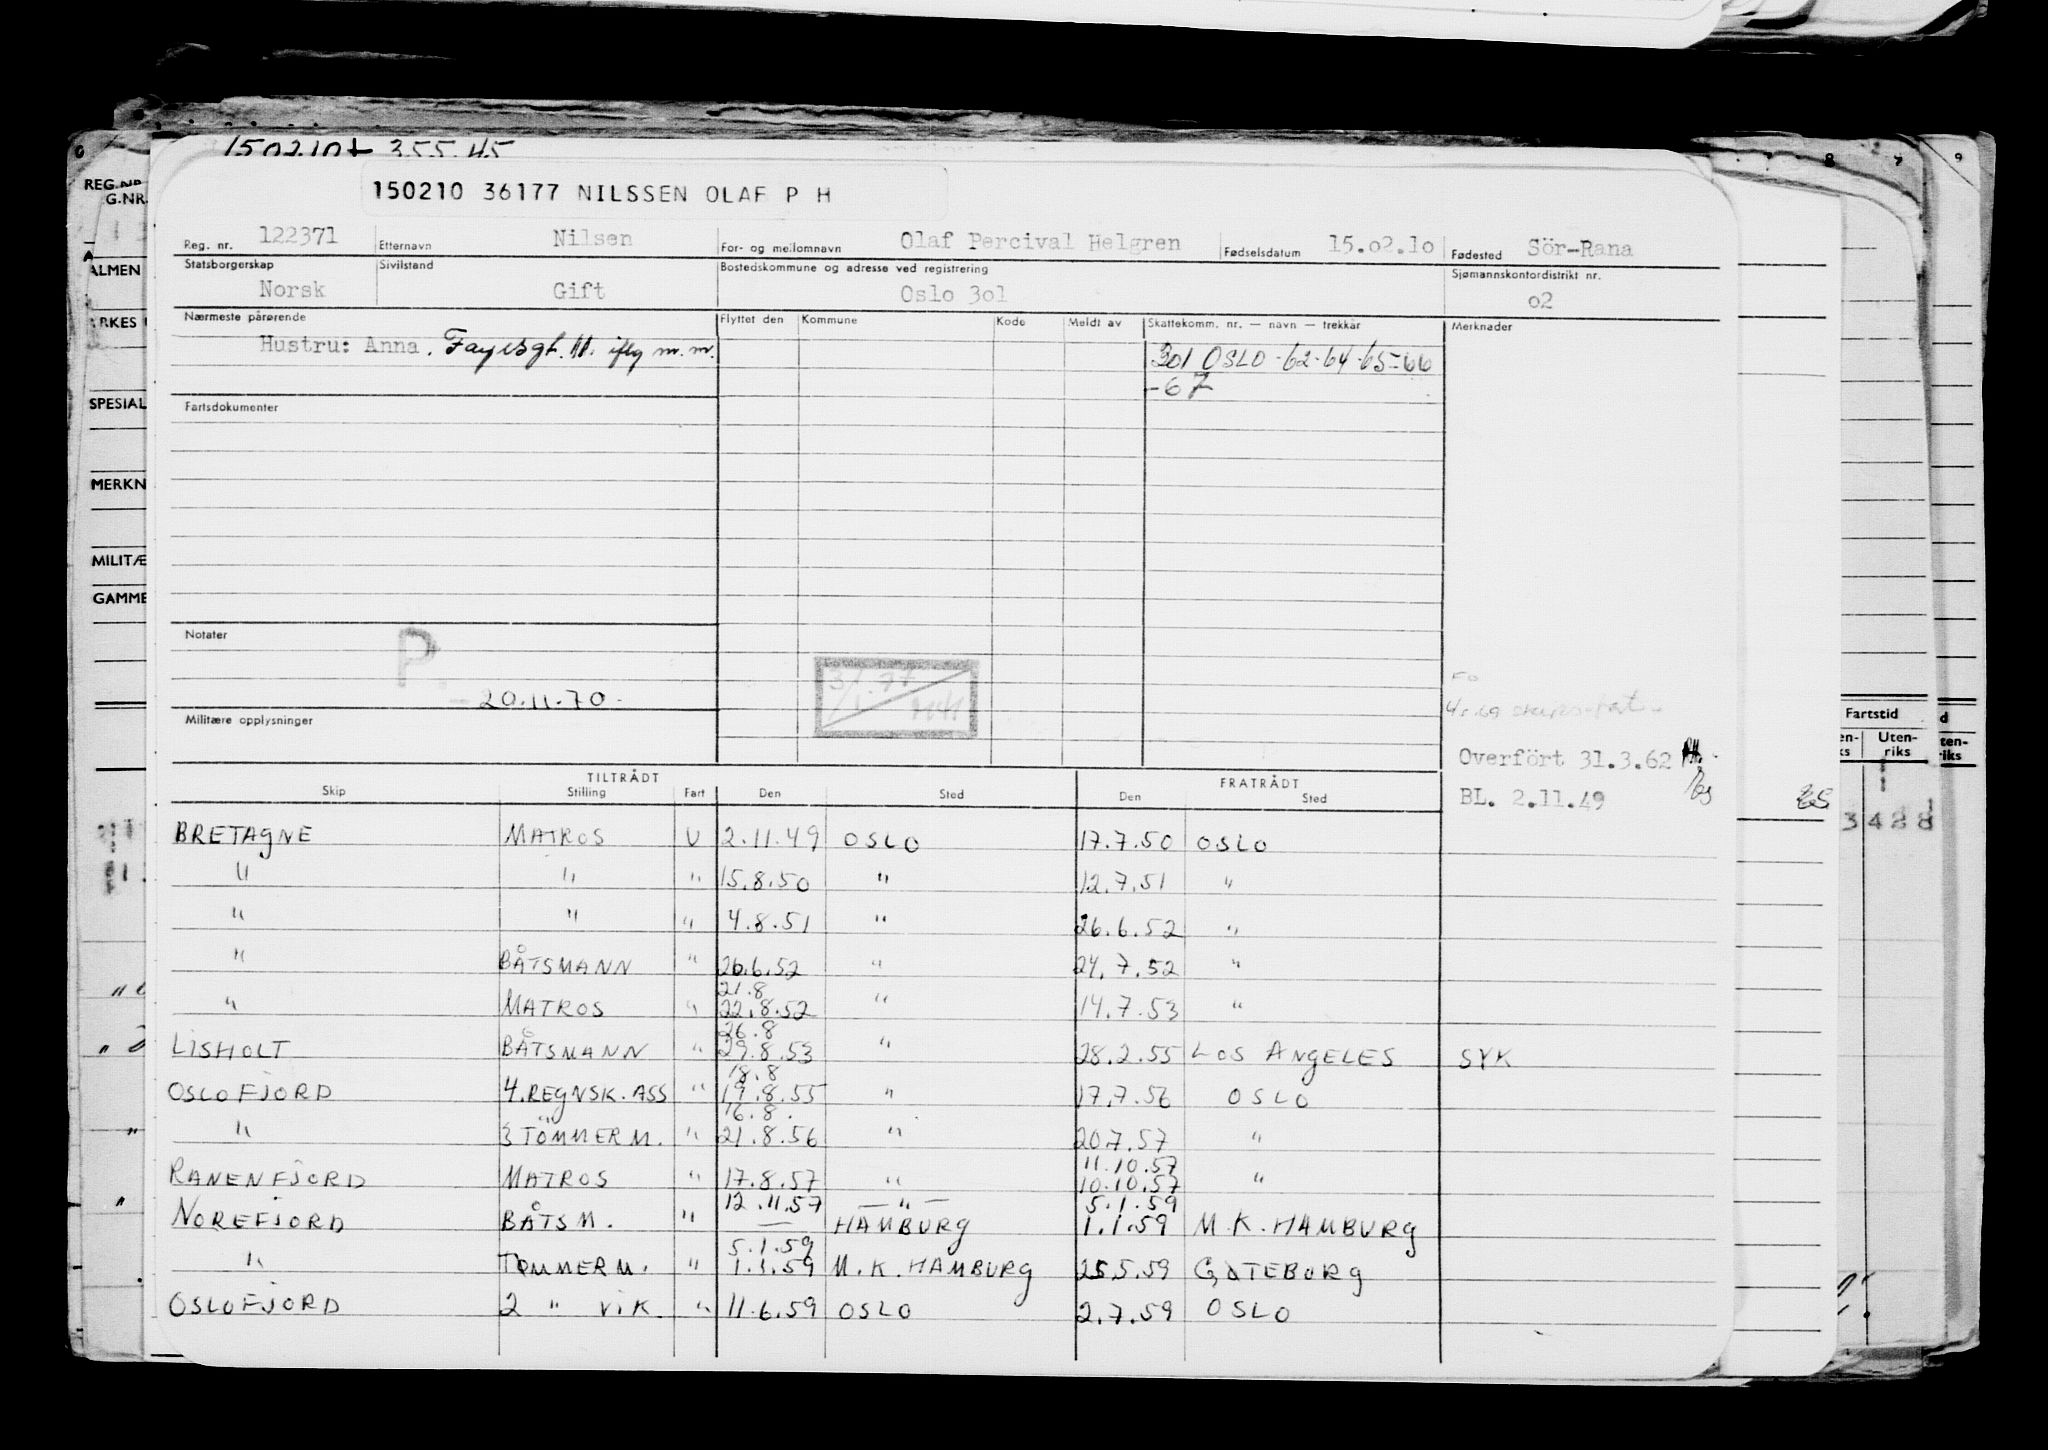 150210+ 355.45
150210 36177 NILSSEN OLAF P H
Reg. nr. 122371 Etternavn Nilsen For- og mellomnavn Olaf Percival Helgren Fødselsdatum 15.02.10 Fødested Sör-Rana
Statsborgerskap Norsk Sivilstand Gift Bostedskommune og adresse ved registrering Oslo 301 Sjømannskontordistrikt nr. 02
Nærmeste pårørende Flyttet den Kommune Kode Meldt av Skattekomm. nr. — navn — trekkår Merknader
Hustru: Anna, Fayesgt. 11. iflg m.m. 301 OSLO -62-64-65-66
-67
Fartsdokumenter
Notater
P.
- 20.11.70.
3/1.77
Militære opplysninger
Overfört 31.3.62
BL. 2.11.49
TILTRÅDT FRATRÅDT
Skip Stilling Fart Den Sted Den Sted
BRETAGNE MATROS U 2.11.49 OSLO 17.7.50 OSLO
" " " 15.8.50 " 12.7.51 "
" " " 4.8.51 " 26.6.52 "
" BÅTSMANN " 26.6.52 " 24.7.52 "
21.8
" MATROS " 22.8.52 " 14.7.53 "
26.8
LISHOLT BÅTSMANN " 29.8.53 " 28.2.55 LOS ANGELES SYK
18.8
OSLOFJORD 4.REGNSK.ASS " 19.8.55 " 17.7.56 OSLO
16.8.
" 3 TÖMMERM. " 21.8.56 " 20.7.57 "
11.10.57
RANENFJORD MATROS " 17.8.57 " 10.10.57 "
12.11.57 — " — 5.1.59
NOREFJORD BÅTSM. " — HAMBURG 1.1.59 M.K. HAMBURG
5.1.59
" TØMMERM. " 1.1.59 M.K. HAMBURG 25.5.59 GØTEBORG
OSLOFJORD 2 " VIK " 11.6.59 OSLO 2.7.59 OSLO
REG.NR
G.NR.
ALMEN
SPESIAL
MERKN
MILITÆ
GAMME
Fartstid
Uten-
riks
3428